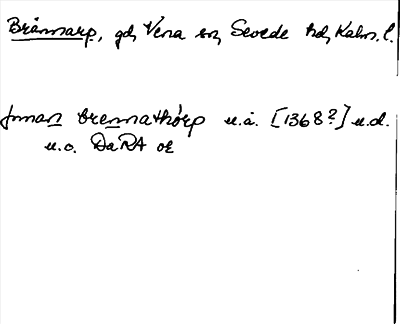 Brännarp, gd, Vena sn, Sevede hd, Kalm. l.
Innan brennathørp u.å. [1368?] u.d.
u.o. DaRA or